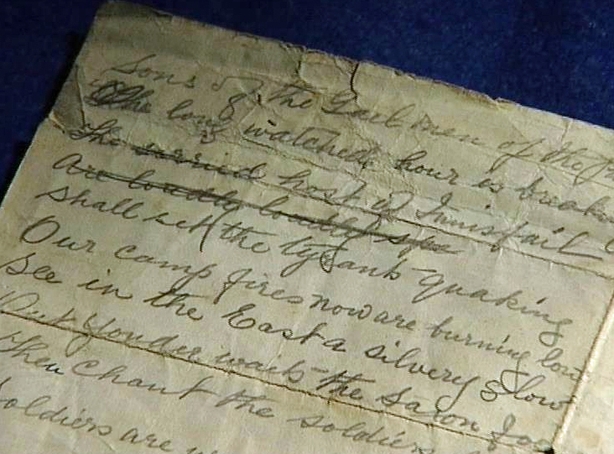 Sons of the Gael men of the
The long watched hour is break
The serried host of Innisfail
Are loudly loudly
shall set the tyrant quaking
Our camp fires now are burning low
See in the East a silvery glow
Out yonder waits the Saxon foe
then chant the soldiers
soldiers are